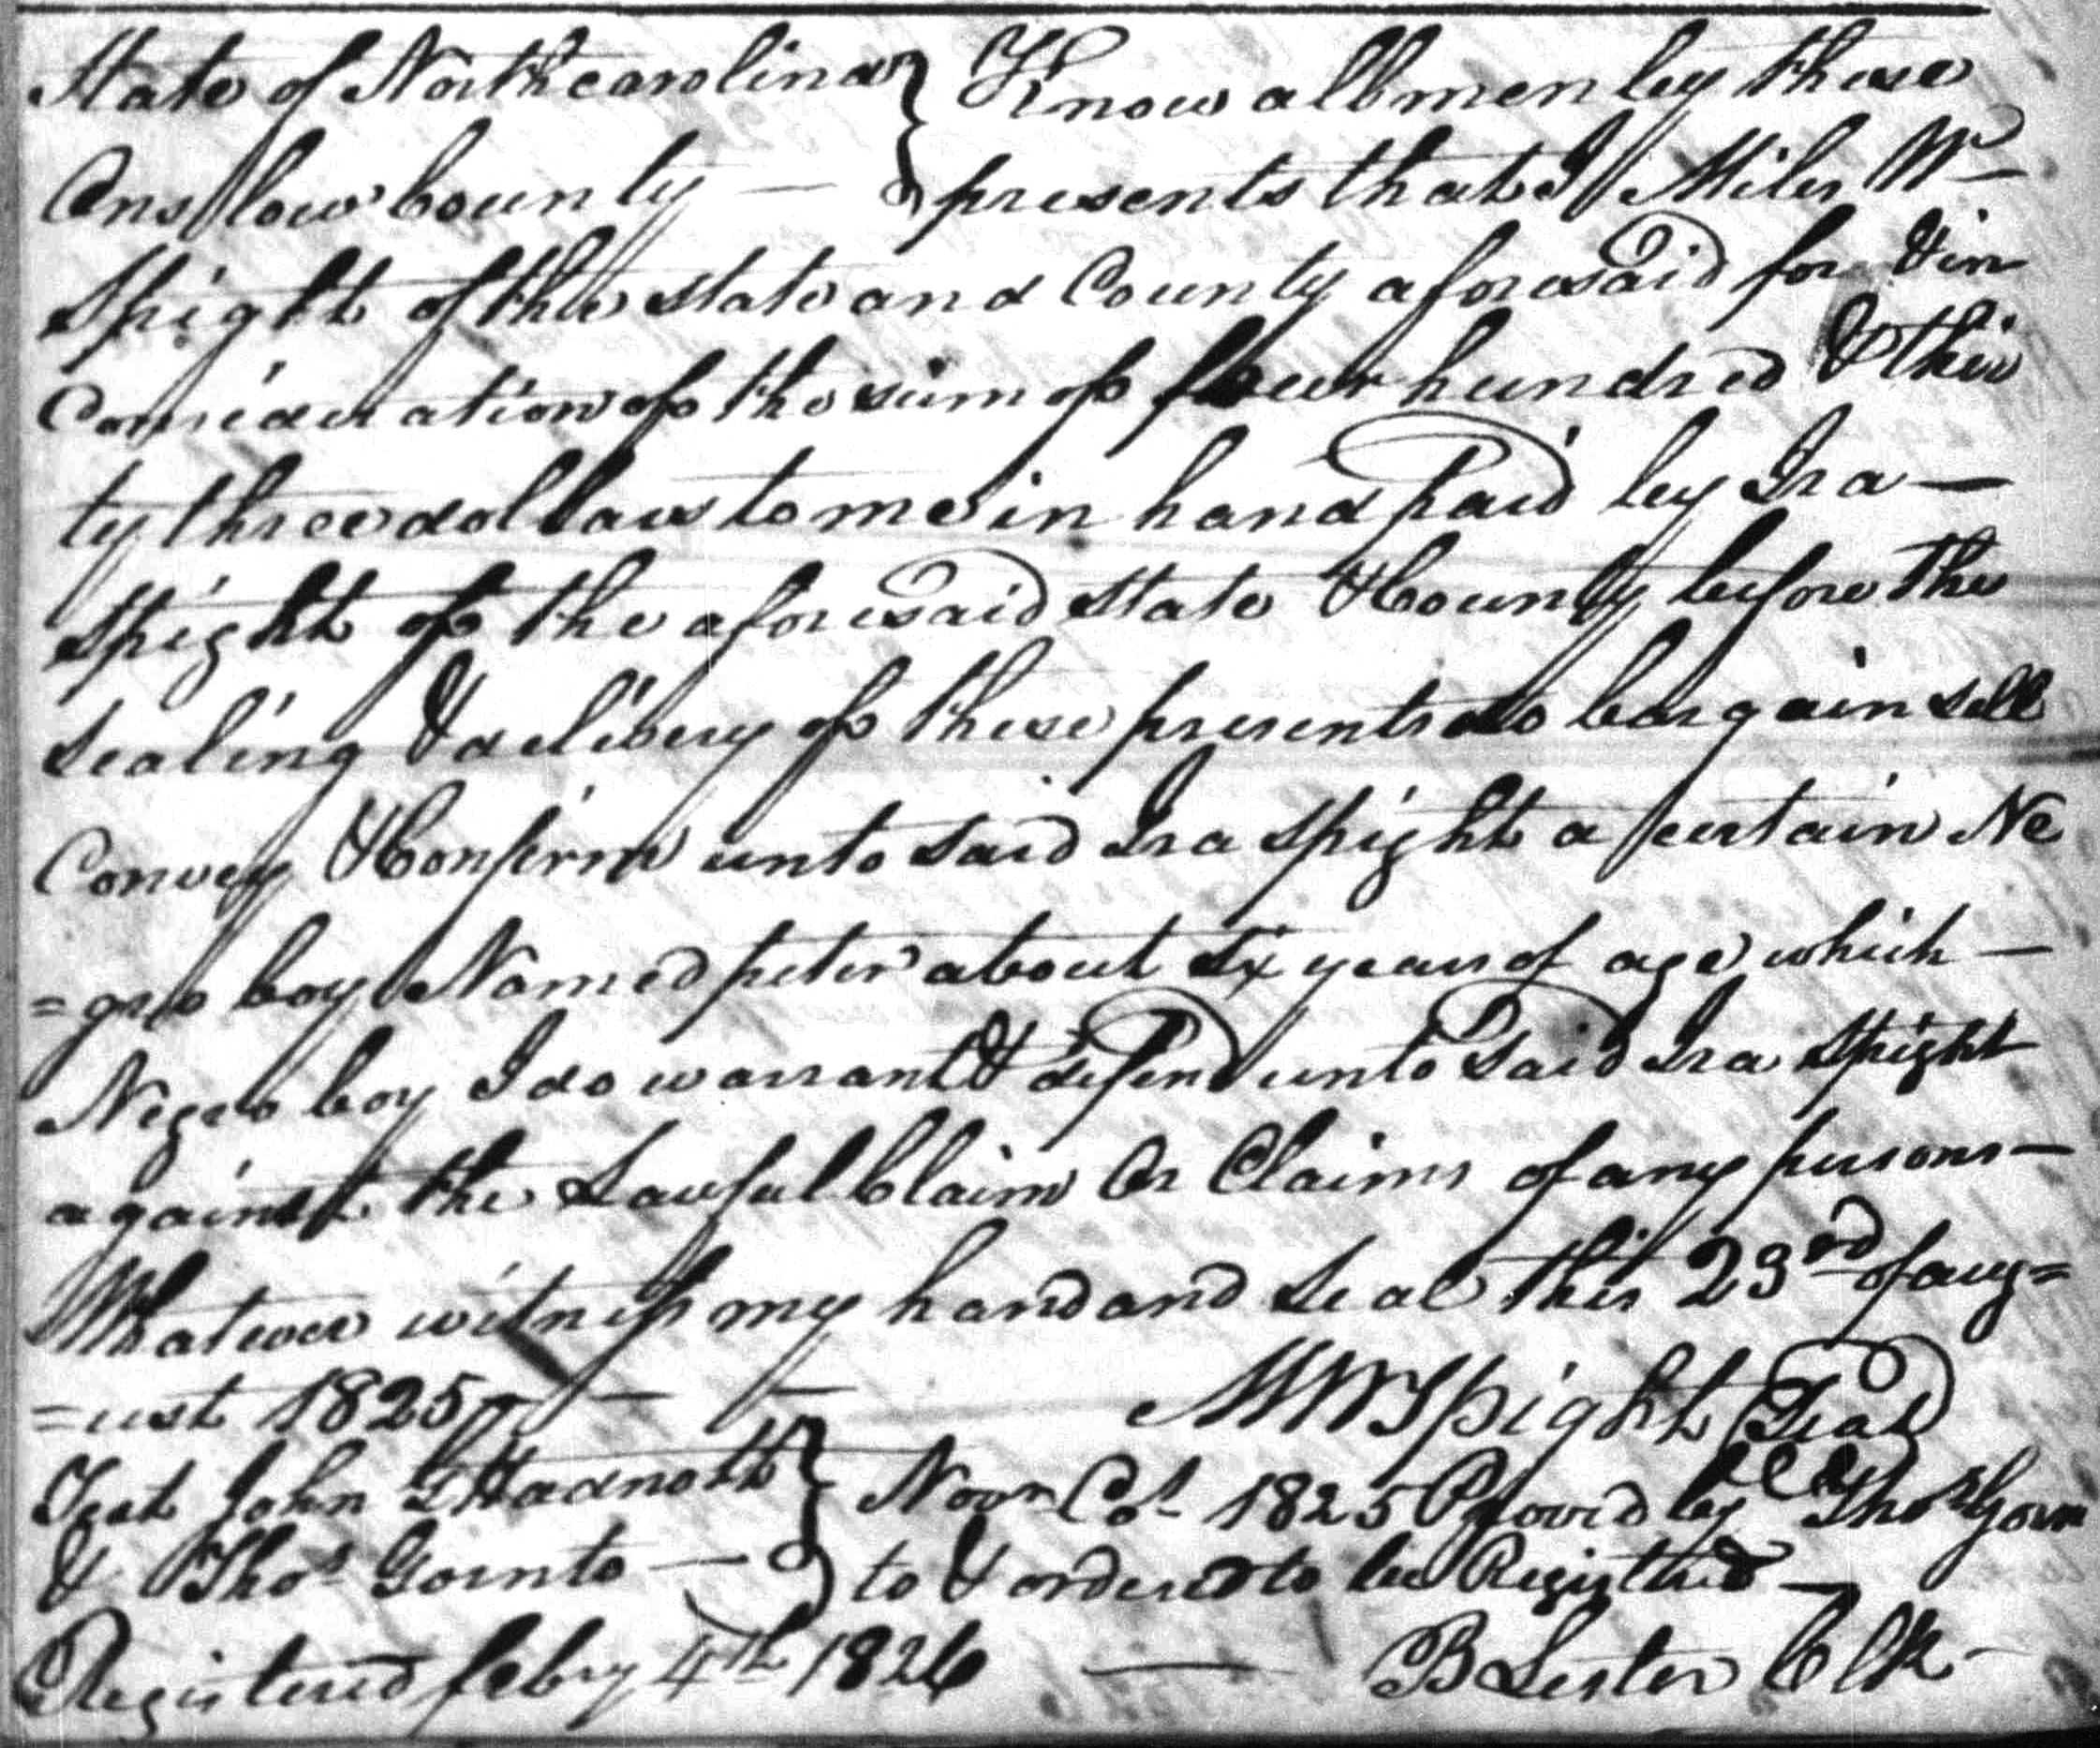 State of Northcarolina } Know all men by these
Onslow County — } presents that I Miles W-
Spight of the state and County aforesaid for & in
Consideration of the sum of four hundred & thir
ty three dollars to me in hand paid by Ira —
Spight of the aforesaid state & County before the
sealing & delivery of these presents do bargain sell
Convey & Confirm unto said Ira Spight a certain Ne
=gro boy Named peter about six years of age which —
Negro boy I do warrant & defend unto said Ira Spight
against the Lawful Claim Or Claims of any persons —
Whatever witness my hand and seal this 23rd of aug=
=ust 1825 — — — M W Spight Seal
Test John Hadnott } Novr Cot 1825 Proved by Thos Goin
& Thos Gointo — } to & ordered to be Registered —
Registered feby 4th 1826 — B Lester Clk -